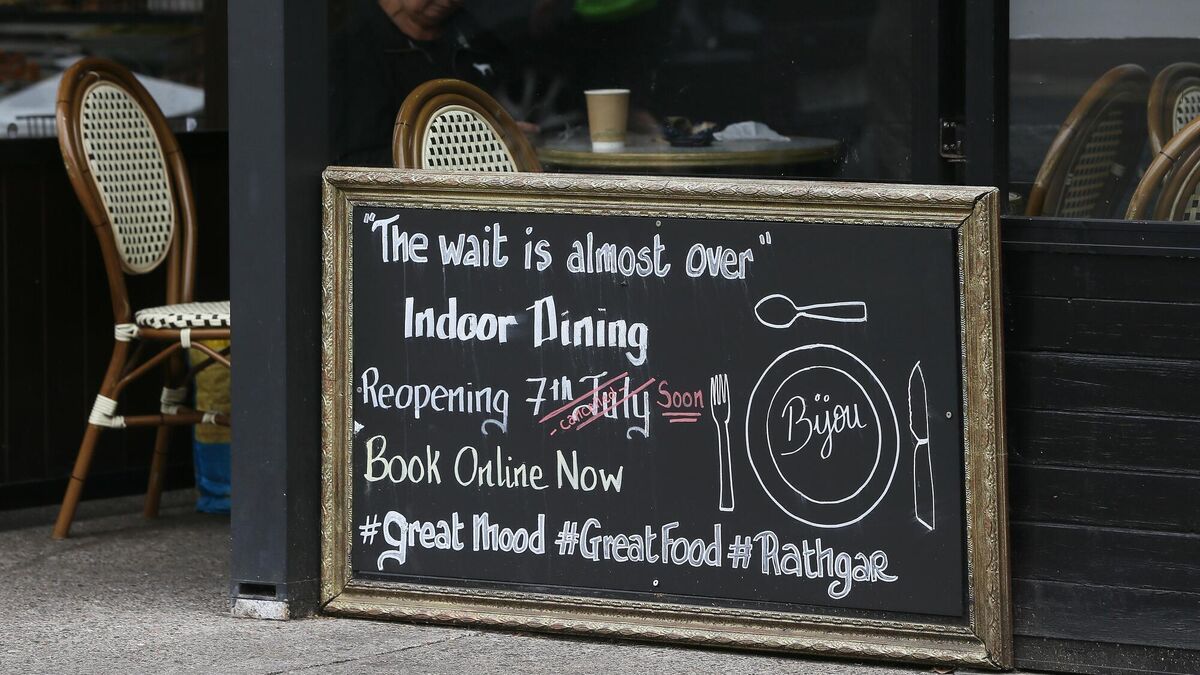 "The wait is almost over"
Indoor Dining
Reopening 7th July Soon
- cancelled -
Book Online Now
#great Mood #Great Food #Rathgar
Bijou